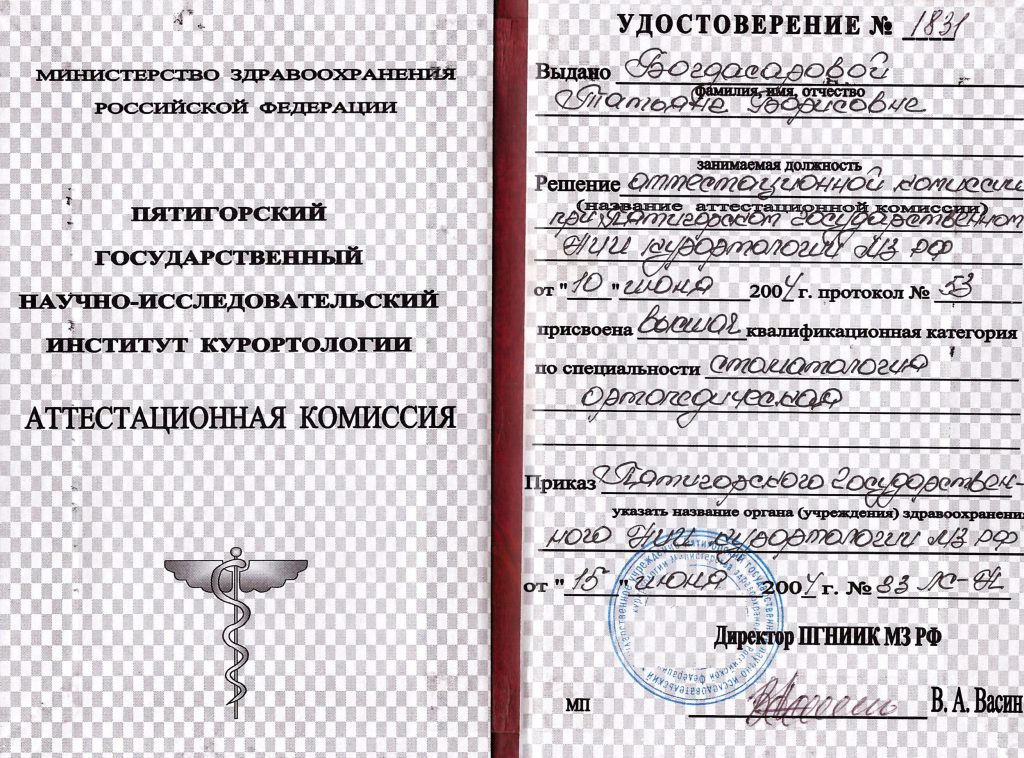 МИНИСТЕРСТВО ЗДРАВООХРАНЕНИЯ
РОССИЙСКОЙ ФЕДЕРАЦИИ
ПЯТИГОРСКИЙ
ГОСУДАРСТВЕННЫЙ
НАУЧНО-ИССЛЕДОВАТЕЛЬСКИЙ
ИНСТИТУТ КУРОРТОЛОГИИ
АТТЕСТАЦИОННАЯ КОМИССИЯ
УДОСТОВЕРЕНИЕ № 1831
Выдано Богдасаровой
фамилия, имя, отчество
Татьяне Борисовне
занимаемая должность
Решение аттестационной комиссии
(название аттестационной комиссии)
при Пятигорском государственном
НИИ курортологии МЗ РФ
от "10" июня 2004 г. протокол № 53
присвоена высшая квалификационная категория
по специальности стоматология
ортопедическая
Приказ Пятигорского государствен-
указать название органа (учреждения) здравоохранени
ного НИИ курортологии МЗ РФ
от "15" июня 2004 г. № 33 ЛС-Н
Директор ПГНИИК МЗ РФ
МП
В. А. Васин